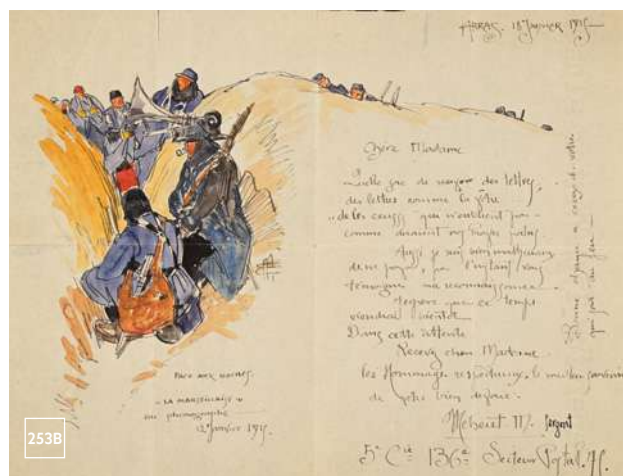 ARRAS. 18 Janvier 1915
Chère Madame
Quelle joie de recevoir des lettres,
des lettres comme la vôtre
"de les cœurs qui n'oublient pas"
comme disaient
Aussi je suis bien malheureux
de ne pouvoir, pour l'instant vous
témoigner ma reconnaissance.
J'espère que ce temps
viendra bientôt
Dans cette attente
Recevez chère Madame
les Hommages respectueux, le meilleur souvenir
de votre bien dévoué.
Méheut M. Sergent
5e Cie 136e Secteur Postal
Bonne
FACE AUX BOCHES.
"LA MARSEILLAISE"
au phonographe
12 Janvier 1915.
253B